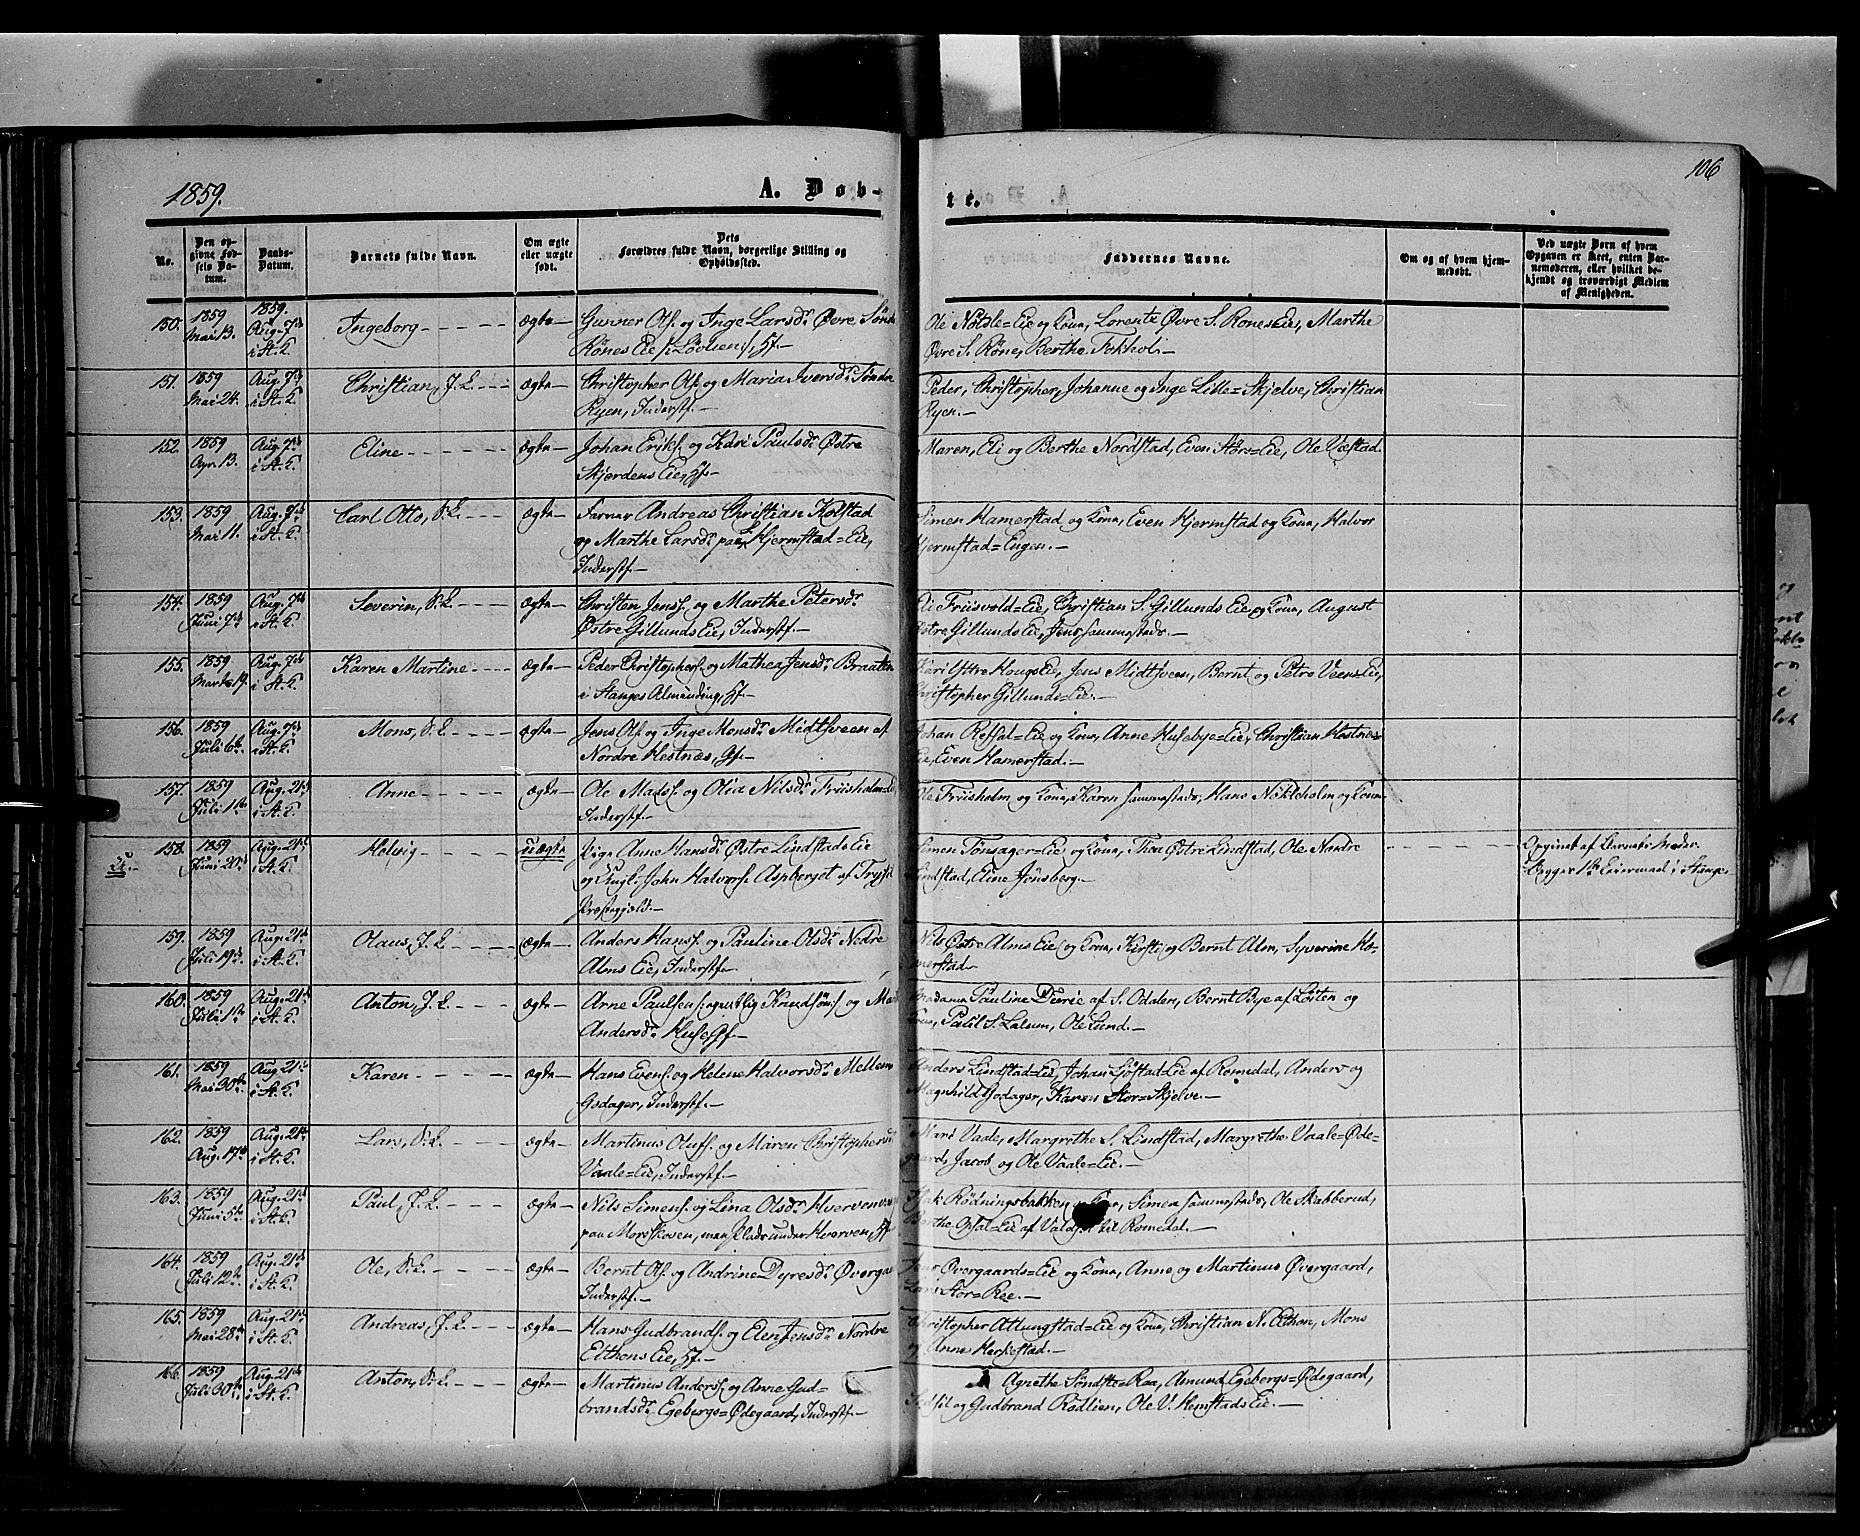 1859.
A. Døb-
te.
106
No.
Den op-
givne Fød-
sels Da-
tum.
Daabs-
Datum.
Barnets fulde Navn.
Om ægte
eller uægte
født.
Dets
Forældres fulde Navn, borgerlige Stilling og
Opholdssted.
Faddernes Navne.
Om og af hvem hjem-
medøbt.
Ved uægte Børn af hvem
Opgaven er skeet, enten Bar-
nemoderen, eller hvilket be-
kjendt og troværdigt Medlem
af Menigheden.
150. 1859 Mai 13. 1859. Aug. 7de i St. K. Ingeborg ægte
Gunner Ols. og Inge Larsdr Øvre Søndre
Rønes Eie /: Løvlien :/, Hf.
Ole Nøtsle=Eie og Kone, Lorentz Øvre S. Rones Eie, Marthe
Øvre S. Røne, Berthe Tokholi
151. 1859 Mai 24. Aug. 7de i St. K. Christian, J. L. ægte
Christopher Ols. og Maria Iversdr Søndre
Ryen, Inderstf.
Peder, Christopher, Johanne og Inge Lille=Skjelve, Christian
Ryen.
152. 1859 Apr. 13. Aug. 7de i St. K. Eline ægte
Johan Eriks. og Kari Paulsdr Østre
Skjerdens Eie, Hf.
Maren, Eli og Berthe Nordstad, Even Stor=Eie, Ole Væstad.
153. 1859 Mai 11. Aug. 7de i St. K. Carl Otto, S. L. ægte
Farver Andreas Christian Kolstad
og Marthe Larsdr paa Hjermstad=Eie,
Inderstf.
Simen Hamerstad og Kone, Even Hjermstad og Kone, Halvor
Hjermstad=Engen.
154. 1859 Juni 7de Aug. 7de i St. K. Severin, S. L. ægte
Christen Jens. og Marthe Petersdr
Østre Gillunds Eie, Inderstf.
Eli Frisvold=Eie, Christian S. Gillunds Eie og Kone, August
Østre Gillunds Eie, Jens sammestads.
155. 1859 Marts 19. Aug. 7de i St. K. Karen Martine ægte
Peder Christophers. og Mathea Jensdr Braaten
i Stanges Almending, Hf.
Kari Ystre Hougs Eie, Jens Midtsveen, Bernt og Petro Veens Eie,
Christopher Gillunds=Eie.
156. 1859 Juli 6te Aug. 7de i St. K. Mons, S. L. ægte
Jens Ols. og Inge Monsdr Midtsveen af
Nordre Hestnæs, Gf.
Johan Refsal=Eie og Kone, Anne Husebye=Eie, Christian Hestnæs=
Eie, Even Hamerstad.
157. 1859 Juli 1ste Aug. 21de i St. K. Anne ægte
Ole Mads. og Olia Nilsdr Friisholm=E
Inderstf.
Ole Friisholm og Kone, Karen sammestads, Hans Nøkleholm og Kone
158. 1859 Juni 20de Aug. 21de i St. K. Helvig uægte
Pige Anne Hansdr Østre Lindstads Eie
og Ungk. John Halvors. Aspberget af Trysil
Præstegjæld.
Simen Tønsager=Eie og Kone, Thea Østre Lindstad, Ole Nordre
Lindstad, Eline Jønsberg.
Opgivet af Barnets Moder.
Begges 1ste Leiermaal i Stange.
159. 1859 Juli 19de Aug. 21de i St. K. Olaus, J. L. ægte
Anders Hans. og Pauline Olsdr Nedre
Alms Eie, Inderstf.
Nils Østre Alms Eie og Kone, Kirsti og Bernt Alm, Syverine Ha-
merstad.
160. 1859 Juli 1ste Aug. 21de i St. K. Anton, J. L. ægte
Arne Paulsen /: egentlig Knudsøn :/ og Mari
Andersdr Huse, Gf.
Madame Pauline Diurie af S. Odalen, Bernt Bye af Løten og
Kone, Paul S. Lalum, Ole Lund.
161. 1859 Mai 30te Aug. 21de i St. K. Karen ægte
Hans Evens. og Helene Halvorsdr Mellem
Gsdager, Inderstf.
Anders Lindstad=Eie, Johan Sjøstad=Eie af Romedal, Anders og
Magnhild Godager, Karen Stor=Skjelve.
162. 1859 Aug. 17de Aug. 21de i St. K. Lars, S. L. ægte
Martinus Olufs. og Maren Christophersdr
Vaale=Eie, Inderstf.
Mari Vaale, Margrethe S. Lindstad, Margrethe Vaale=Øde-
gaard, Jacob og Ole Vaale=Eie.
163. 1859 Juni 5te Aug. 21de i St. K. Paul, J. L. ægte
Nils Simens. og Lina Olsdr Hverven
paa Morskoven, men Plads under Hverven, Hf
Rødningsbakken og Kone, Simen sammestads, Ole Skabberud,
Berthe Opsal=Eie af Valdset til Romedal.
164. 1859 Juli 12te Aug. 21de i St. K. Ole, S. L. ægte
Bernt Ols. og Andrine Dyresdr Øvergaa
Inderstf.
Iver Overgaards=Eie og Kone, Anne og Martinus Øvergaard,
Lars Stor=Ree.
165. 1859 Mai 28de Aug. 21de i St. K. Andreas, J. L. ægte
Hans Gudbrands. og Elen Jensdr Nordre
Ellhons Eie, Hf.
Christopher Atlungstad=Eie og Kone, Christian N. Ellhon, Mons
og Anne Herkestad.
166. 1859 Juli 30te Aug. 21de i St. K. Anton, S. L. ægte
Martinus Anders. og Anne Gud-
brandsdr Egebergs=Ødegaard, Inderstf.
Agnethe Søndste=Raa, Amund Egebergs=Ødegaard,
Sidsil og Gudbrand Rødlien, Ole V. Hemstads Eie.